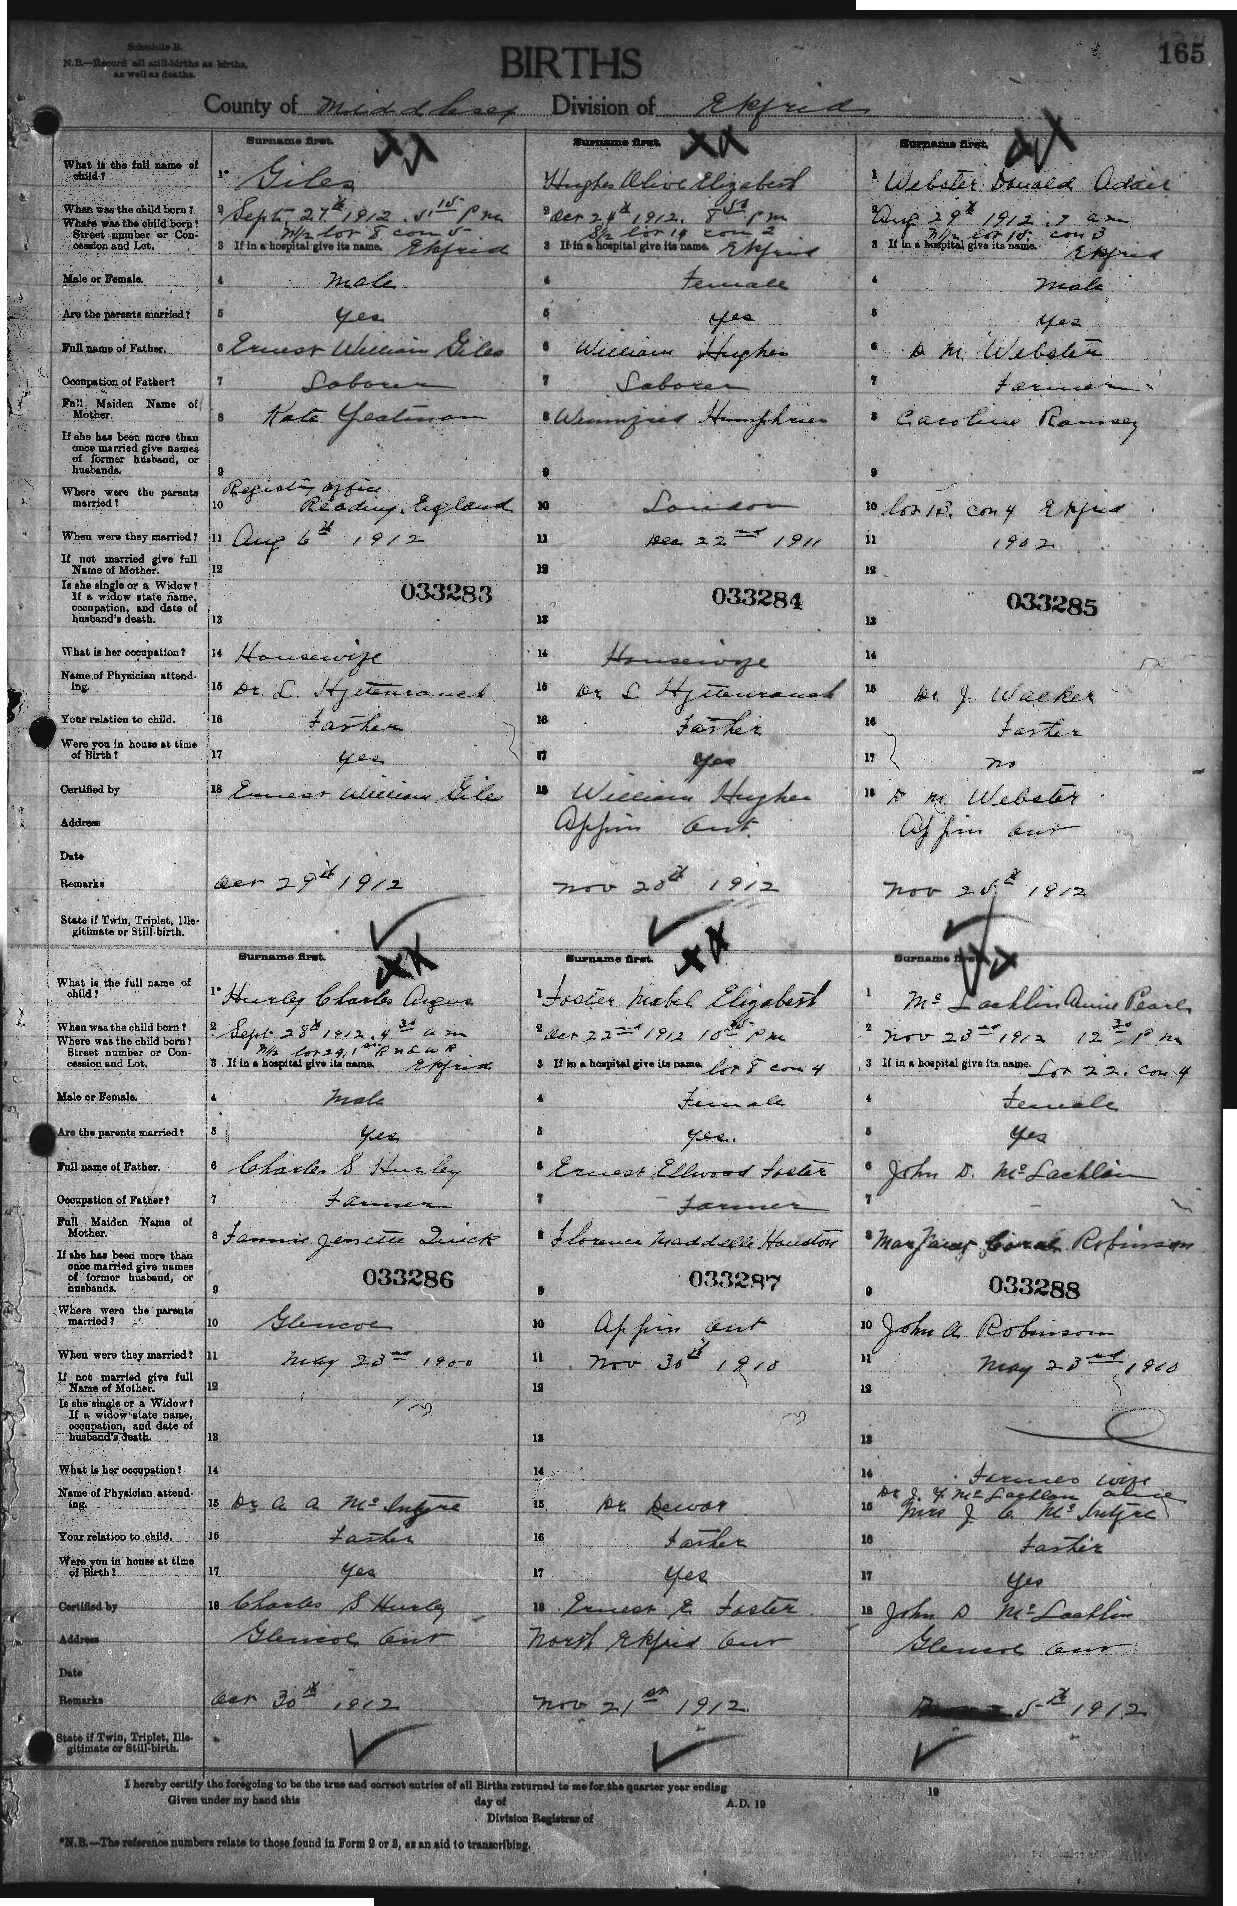 Schedule B.
N.B.—Record all still-births as births,
as well as deaths.
BIRTHS
165
County of Middlesex Division of Ekfrid
Surname first. Surname first. Surname first.
What is the full name of child? 1 Giles
1 Hughes Olive Elizabeth
1 Webster Donald Adair
When was the child born? 2 Sept 27th 1912. 5.15 P m
2 Oct 24th 1912. 8 50 P m
2 Aug 29th 1912. 7 a m
Where was the child born? Street number or Concession and Lot. N/2 lot 8 con 5
S/2 lot 19 con 2
N/2 lot 15. con 3
3 If in a hospital give its name. Ekfrid
3 If in a hospital give its name. Ekfrid
3 If in a hospital give its name. Ekfrid
Male or Female. 4 Male 4 Female 4 Male
Are the parents married? 5 Yes 5 Yes 5 Yes
Full name of Father. 6 Ernest William Giles 6 William Hughes 6 D M Webster
Occupation of Father? 7 Laborer 7 Laborer 7 Farmer
Full Maiden Name of Mother. 8 Kate Yeatman 8 Winnifred Humphries 8 Caroline Ramsey
If she has been more than once married give names of former husband, or husbands. 9 9 9
Where were the parents married? 10 Registry office Reading, England 10 London 10 lot 13. con 4 Ekfrid
When were they married? 11 Aug 6th 1912 11 Dec 22nd 1911 11 1902
If not married give full Name of Mother. 12 12 12
033283 033284 033285
Is she single or a Widow? If a widow state name, occupation, and date of husband's death. 13 13 13
What is her occupation? 14 Housewife 14 Housewife 14
Name of Physician attending. 15 Dr. L. Hyttenrauch 15 Dr L Hyttenrauch 15 Dr J Walker
Your relation to child. 16 Father 16 Father 16 Father
Were you in house at time of Birth? 17 Yes 17 Yes 17 No
Certified by 18 Ernest William Giles 18 William Hughes 18 D M Webster
Address Appin Ont. Appin Ont
Date
Remarks Oct 29th 1912 Nov 20th 1912 Nov 25th 1912
State if Twin, Triplet, Illegitimate or Still-birth.
Surname first. Surname first. Surname first.
What is the full name of child? 1 Hurley Charles Angus 1 Foster Mabel Elizabeth 1 McLachlin Annie Pearl
When was the child born? 2 Sept 28th 1912. 4 30 a m 2 Oct 22nd 1912 10 P m 2 Nov 23rd 1912 12 30 P m
Where was the child born? Street number or Concession and Lot. N/2 lot 24, 1st R
3 If in a hospital give its name. Ekfrid 3 If in a hospital give its name. lot 8 con 4 3 If in a hospital give its name. Lot 22. con 4
Male or Female. 4 Male 4 Female 4 Female
Are the parents married? 5 Yes 5 Yes. 5 Yes
Full name of Father. 6 Charles S Hurley 6 Ernest Ellwood Foster 6 John D. McLachlin
Occupation of Father? 7 Farmer 7 Farmer 7
Full Maiden Name of Mother. 8 Fannie Jenette Quick 8 Florence Maddelle Houston 8 Robinson
If she has been more than once married give names of former husband, or husbands. 9 9 9
033286 033287 033288
Where were the parents married? 10 Glencoe 10 Appin Ont 10 John A Robinson
When were they married? 11 May 23rd 1900 11 Nov 30th 1910 11 May 23rd 1910
If not married give full Name of Mother. 12 12 12
Is she single or a Widow? If a widow state name, occupation, and date of husband's death. 13 13 13
What is her occupation? 14 14 14 Farmers wife
Name of Physician attending. 15 Dr A A McIntyre 15 Dr Dewar 15 Dr J. Y McLachlan Mrs J C McIntyre
Your relation to child. 16 Father 16 Father 16 Father
Were you in house at time of Birth? 17 Yes 17 Yes 17 Yes
Certified by 18 Charles S Hurley 18 Ernest E Foster 18 John D McLachlin
Address Glencoe Ont North Ekfrid Ont Glencoe Ont
Date
Remarks Oct 30th 1912 Nov 21st 1912 5th 1912
State if Twin, Triplet, Illegitimate or Still-birth.
I hereby certify the foregoing to be the true and correct entries of all Births returned to me for the quarter year ending 19
Given under my hand this day of A.D. 19
Division Registrar of
*N.B.—The reference numbers relate to those found in Form 2 or 3, as an aid to transcribing.